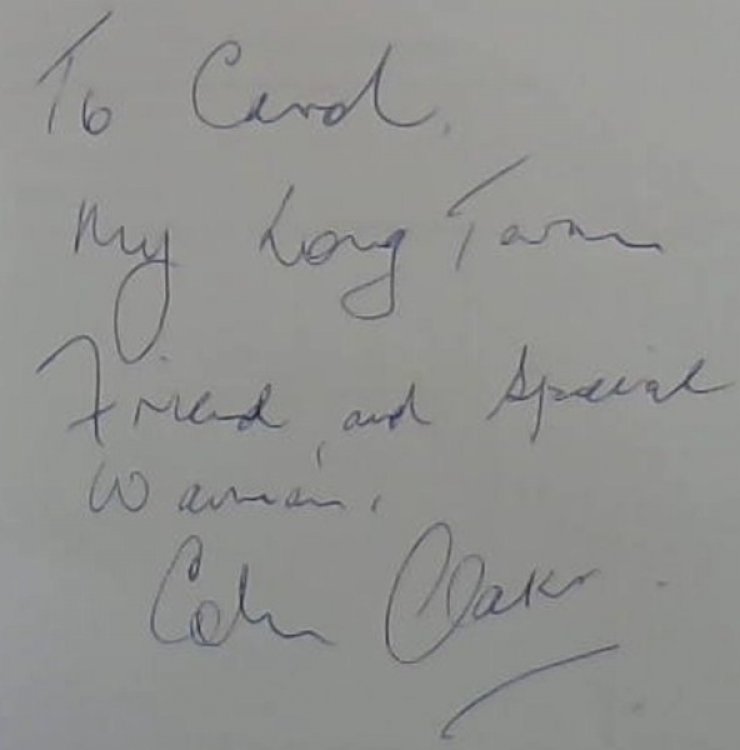 To Carol.
My Long Tarm
Friend, and Special
Woman.
Colin